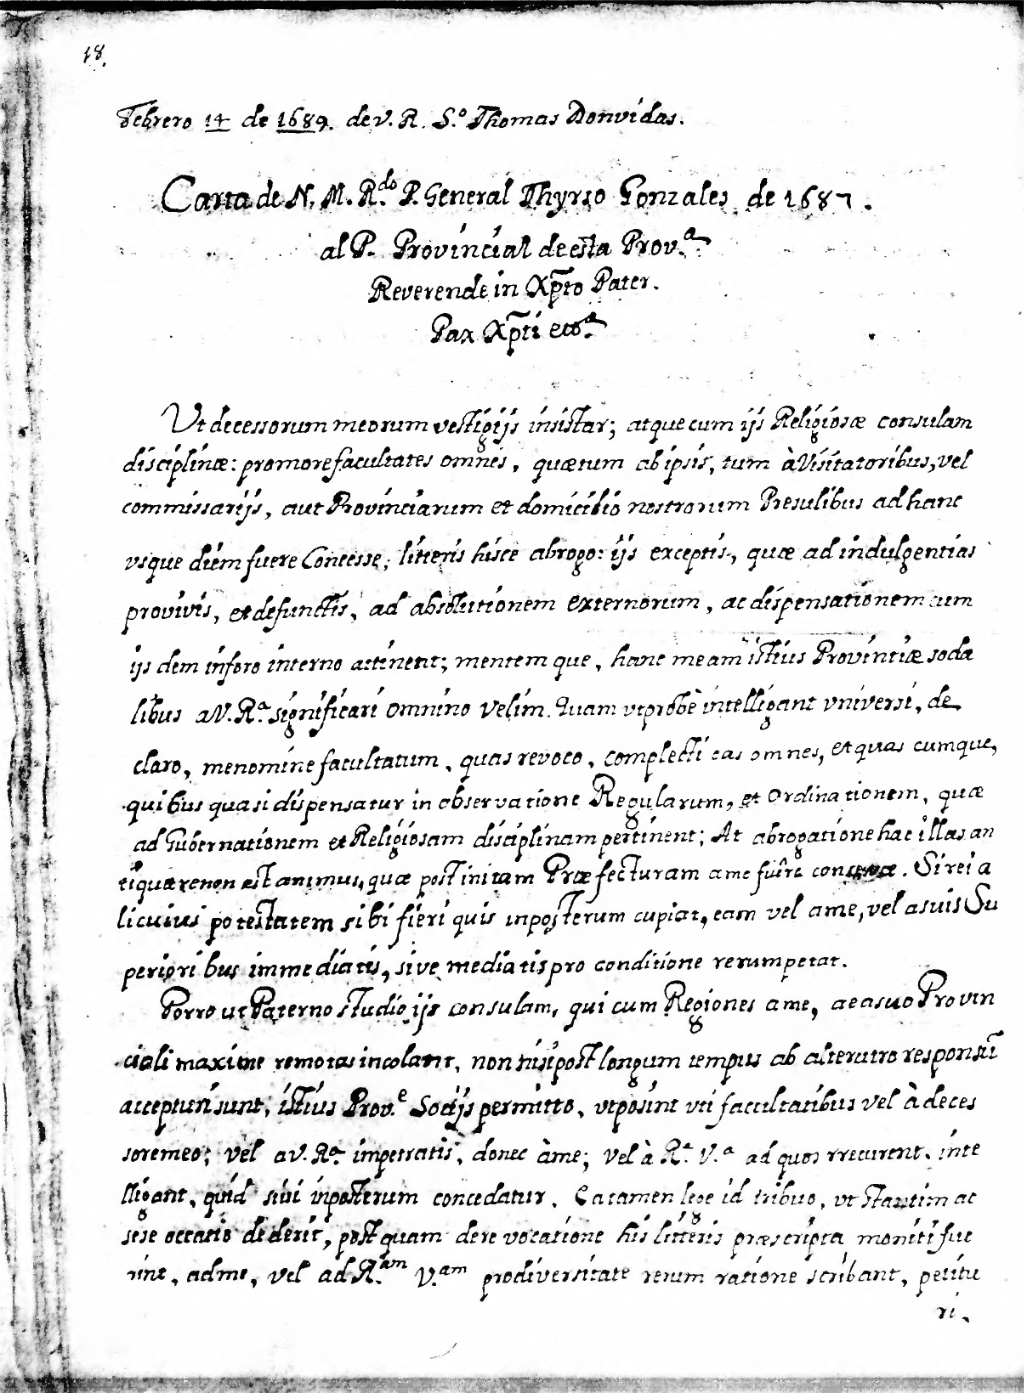 18.
Febrero 14 de 1689. de V. R. S.º Thomas Donvidas.
Carta de N. M. R.do P. General Thyrso Gonzales de 1687.
al P. Provincial de esta Prov.a
Reverende in Xp̃to Pater.
Pax Xp̃ti etc.a
Ut decessorum meorum vestigijs insistar; atque cum ijs Religiosæ consulam
disciplinæ: promore facultates omnes, quætum ab ipsis, tum à Visitatoribus, vel
commissarijs, aut Provinciarum et domicilio nostrorum Presulibus ad hanc
vsque diem fuere Concesse, litteris hisce abrogo: ijs exceptis, quæ ad indulgentias
provivis, et defunctis, ad absolutionem externorum, ac dispensationem cum
ijs dem inforo interno attinent; mentem que, hanc meam istius Provintiæ soda
libus a V. R.a significari omnino velim. Quam vt probè intelligant vniversi, de
claro, me nomine facultatum, quas revoco, complecti eas omnes, et quas cumque,
quibus quasi dispensatur in observatione Regularum, et Ordinationem, quæ
ad Gubernationem et Religiosam disciplinam pertinent; At abrogatione hac illas an
tiquare non est animus, quæ post initam Præfecturam a me fuire concessæ. Si rei a
licuius potestatem sibi fieri quis inposterum cupiat, eam vel a me, vel a suis Su
perioribus immediatis, sive mediatis pro conditione rerum petat.
Porro ut Paterno studio ijs consulam, qui cum Regiones a me, ae a suo Provin
ciali maxime remotas incolant, non nisi post longum tempus ab alterutro responsũ
accepturi sunt; istius Prov.e Socijs permitto, vt posint vti facultatibus vel à deces
sore meo; vel a V. R.a impetratis, donec à me; vel à R.a V.a ad quos rrecurent. inte
lligant, quid sivi inposterum concedatur. Ea tamen lege id tribuo, vt statim ac
sese occasio dederit, post quam de revocatione his litteris præscripta moniti fue
rint, ad me, vel ad R.am V.am pro diversitate rerum ratione scribant, petitu
ri.